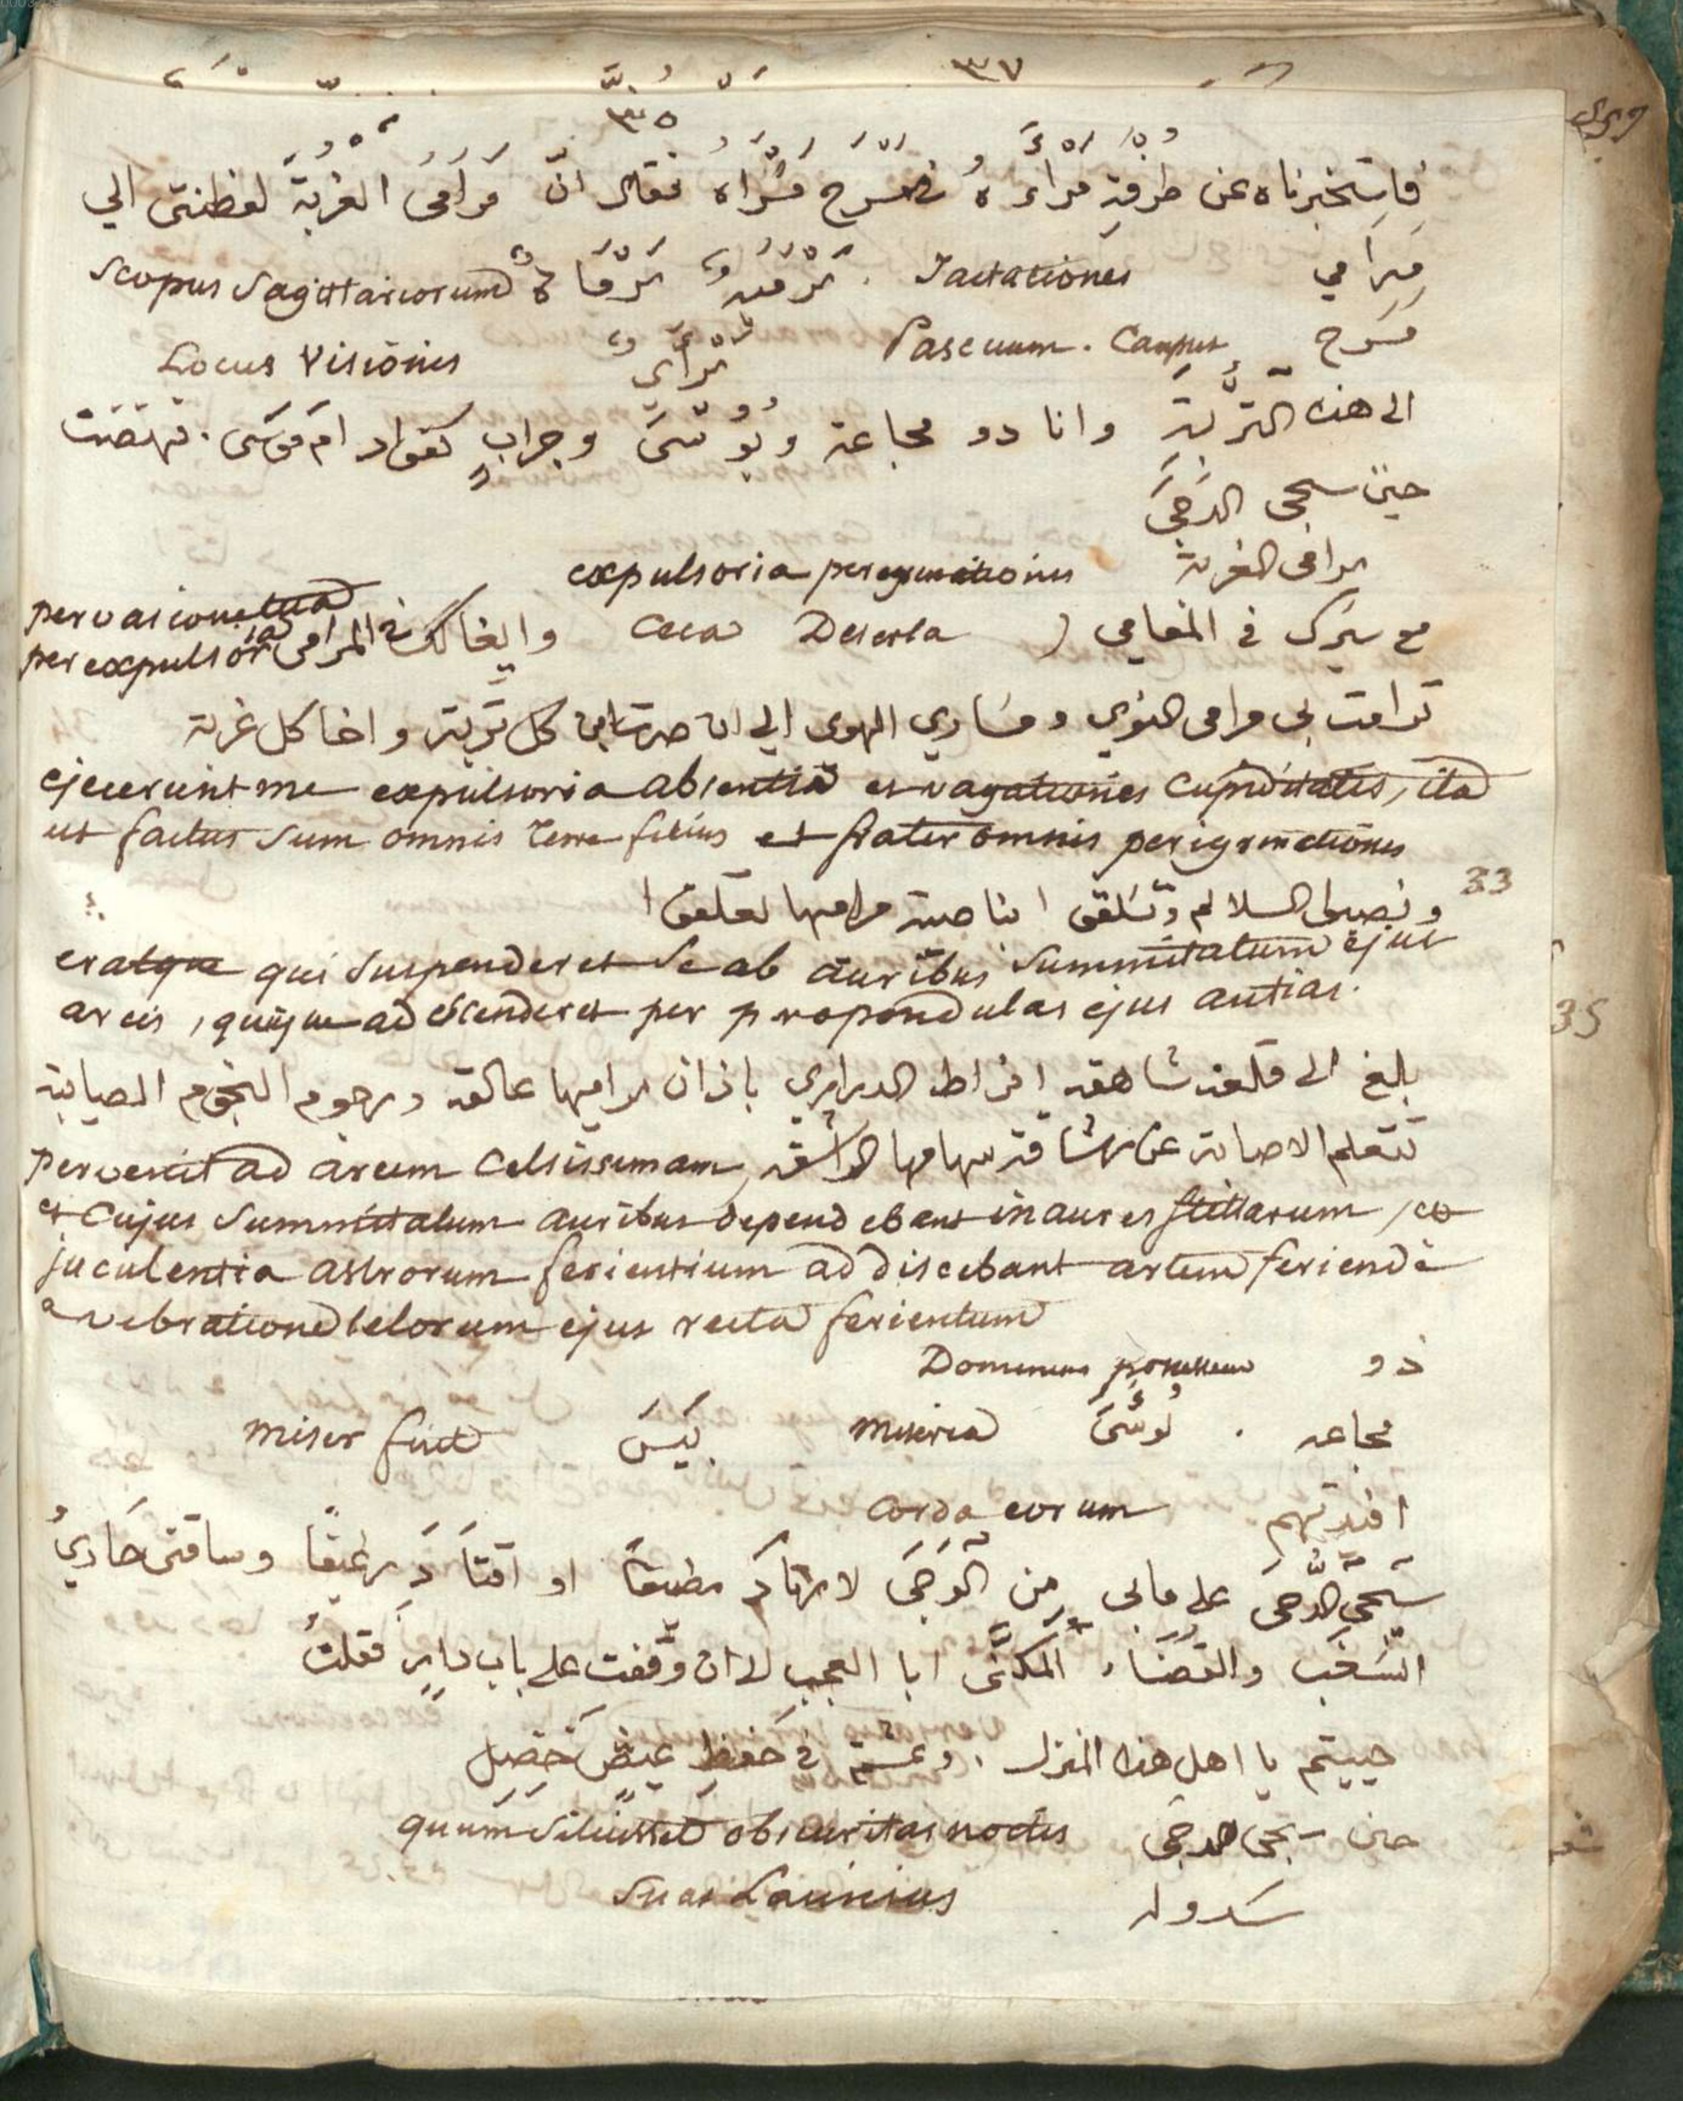 ٣٧
٣٥
فاستخبرناه عن طرفة مرآه في مسرح مسراه فقال ان مرامي الغربة لفظتني الي
مرامي Jactationes . مرمية مرماة Scopus Sagittariorum
مسرح Pascuum . Campus مرأي Locus Visionis
الى هذه التربة وانا ذو مجاعة وبوسى وجراب كفواد ام موسى . فنهضت
حين سجى الدجى
مرامى الغربة expulsoria peregrinationis
مع سيرك في المعامي Ceca Deserta وايغالك في المرامى
per expulsoria
ترامت بى مرامى النوي ومساري الهوى الي ان صرت ابن كل تربة واخا كل غربة
ejecerunt me expulsoria absentia et vagationes cupiditatis, ita
ut factus sum omnis terre filius et frater omnis perigrinationis
33
ونصبوا السلالم وتسلقوا بناصية مراميها تعلقوا
eratque qui suspenderet se ab auribus summitatum ejus
arcis, quique ad escenderet per propondulas ejus antias.
35
بلغ الى قلعة شاهقة اقراط الدراري باذان مراميها عالقة ورجوم النجوم الصايبة
تتعلم الاصابة عن رشاقة سهامها الراشقة
pervenit ad arcem celsissimam,
et cujus summitatum auribus dependebant inaures stillarum, et
juculentia astrorum ferientium addiscebant artem feriendi
a vebratione telorum ejus recta ferientum
ذو Dominus
مجاعه . بوسى miseria بئس miser fuit
افيدتهم corda eorum
سجى الدجى على مابي من الوجى لارتاد مطيفا او اقتاد رغيفا وساقني حادي
السغب والقضاء المكنى ابا العجب لاان وقفت على باب دار فقلت
حييتم يا اهل هذا المنزل . وعشتم في خفض عيش خضل
حين سجى الدجى quum siluisset obscuritas noctis
سدوله